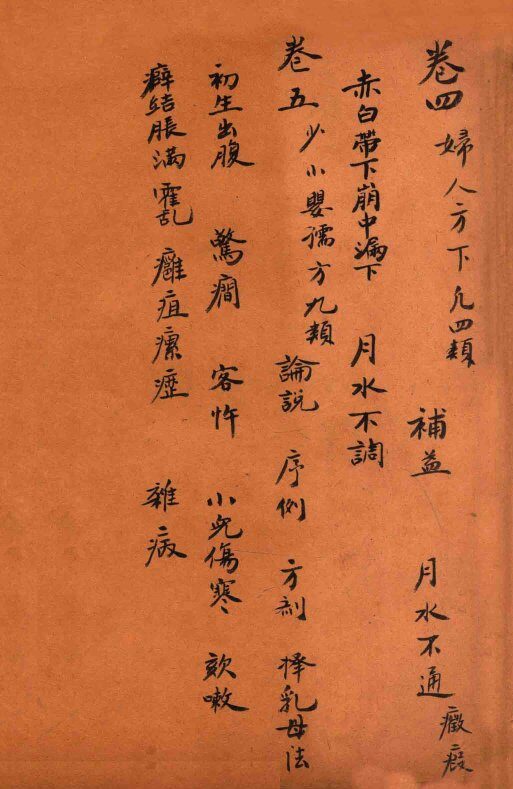 卷四 婦人方下凡四類 補益 月水不通 癥瘕
赤白帶下崩中漏下 月水不調
卷五 少小嬰孺方九類 論説 序例 方剤 擇乳母法
初生出腹 驚癇 客忤 小兒傷寒 欬嗽
癖結脹滿 霍乱 癰疽瘰癧 雜病